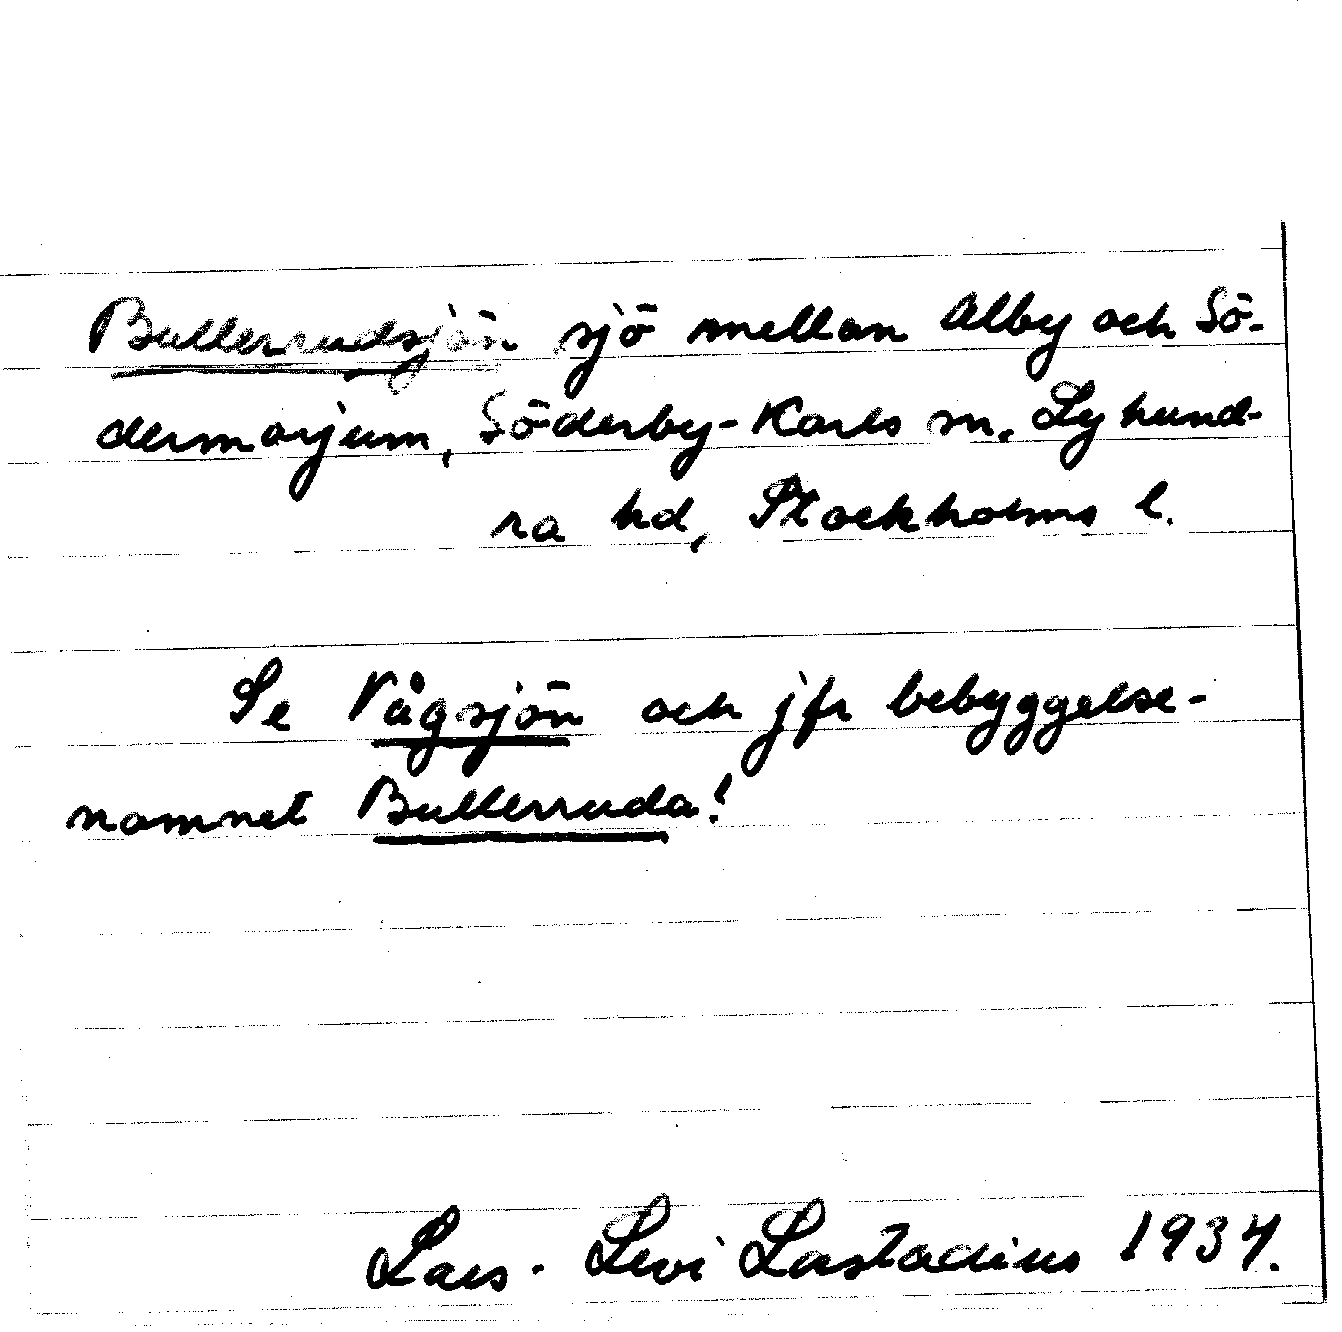 Bullerrudsjön sjö mellan Alby och Sö-
dermarjum, Söderby-Karls sn. Lyhund-
ra hd, Stockholms l.
Se Vågsjön och jfr bebyggelse-
namnet Bullerruda!
Lars-Levi Læstadius 1934.